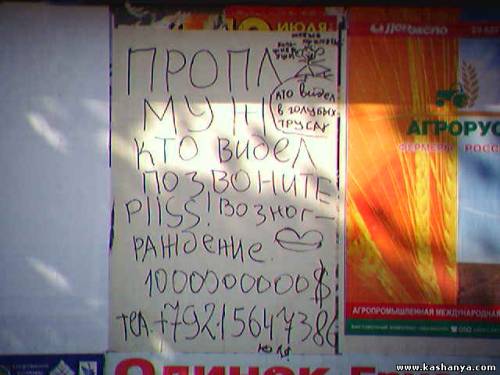 ИЮЛЯ
ПРОПАЛ
МУЖ
КТО ВИДЕЛ
В ГОЛУБЫХ
ТРУСАХ
КТО ВИДЕЛ
ПОЗВОНИТЕ
Pliss! ВОЗНОГ-
РАЖДЕНИЕ
1000000000$
ТЕЛ. +79215647386
Юля
АГРОРУС
ФЕРМЕРЫ РОСС
АГРОПРОМЫШЛЕННАЯ МЕЖДУНАРОДНАЯ
www.kashanya.com